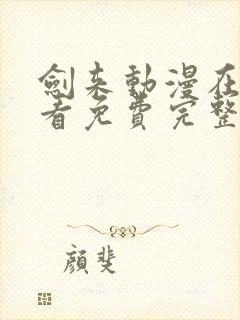 劍来動漫在
看免費完整
顏斐